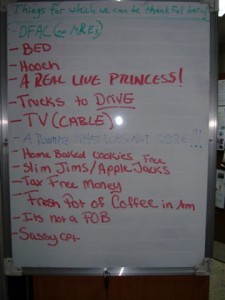 Things for which we can be thankful here
- DFAC (no MREs)
- BED
- Hooch
- A REAL LIVE PRINCESS!
- Trucks to DRIVE
- TV (CABLE)
- A Roommate THAT DOES NOT SNORE!!!
- Home Baked Cookies Free
- Slim Jims/Apple Jacks
- Tax Free Money
- Fresh Pot of Coffee in Am
- Its not a FOB
- Sassy CPT